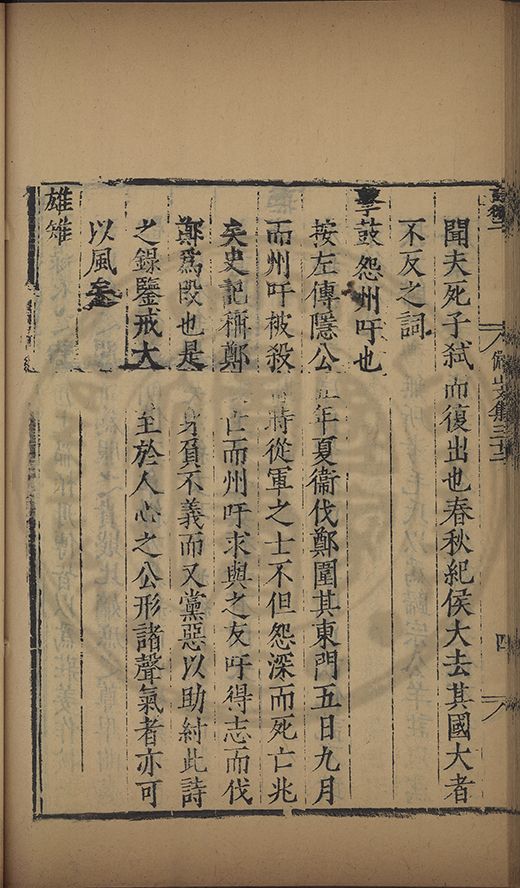 聞夫死子弒而復出也春秋紀侯大去其國大者
不反之詞
擊鼓 怨州吁也
按左傳隱公 年夏衞伐鄭圍其東門五日九月
而州吁被殺 時從軍之士不但怨深而死亡兆
矣史記稱鄭 亡而州吁求與之友吁得志而伐
鄭爲段也是 身負不義而又黨惡以助紂此詩
之錄鑒戒大 至於人心之公形諸聲氣者亦可
以風矣
雄雉